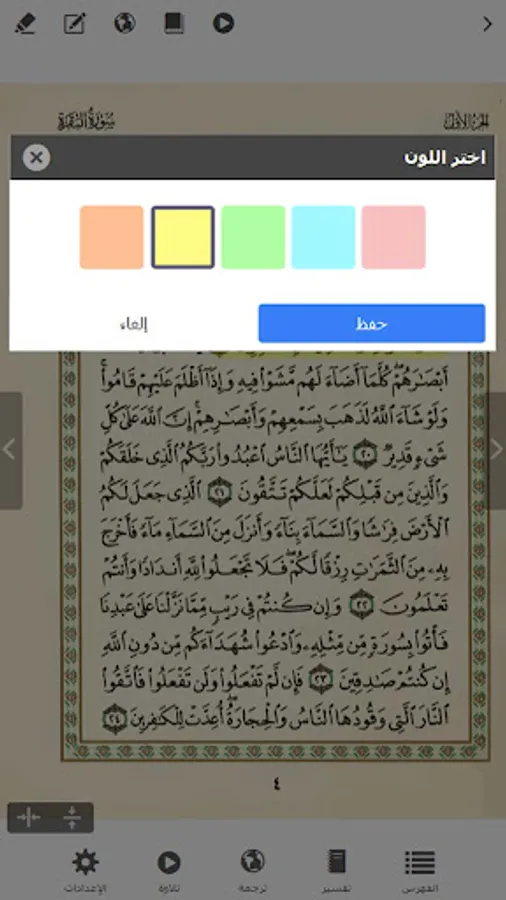 سُورَةُ البَقَرَةِ
الجُزْءُ الأَوَّلُ
اختر اللون
حفظ
إلغاء
أَبْصَٰرَهُمْ كُلَّمَآ أَضَآءَ لَهُم مَّشَوْا۟ فِيهِ وَإِذَآ أَظْلَمَ عَلَيْهِمْ قَامُوا۟
وَلَوْ شَآءَ ٱللَّهُ لَذَهَبَ بِسَمْعِهِمْ وَأَبْصَٰرِهِمْ إِنَّ ٱللَّهَ عَلَىٰ كُلِّ
شَىْءٍ قَدِيرٌ ٢٠ يَٰٓأَيُّهَا ٱلنَّاسُ ٱعْبُدُوا۟ رَبَّكُمُ ٱلَّذِى خَلَقَكُمْ
وَٱلَّذِينَ مِن قَبْلِكُمْ لَعَلَّكُمْ تَتَّقُونَ ٢١ ٱلَّذِى جَعَلَ لَكُمُ
ٱلْأَرْضَ فِرَٰشًا وَٱلسَّمَآءَ بِنَآءً وَأَنزَلَ مِنَ ٱلسَّمَآءِ مَآءً فَأَخْرَجَ
بِهِۦ مِنَ ٱلثَّمَرَٰتِ رِزْقًا لَّكُمْ ۖ فَلَا تَجْعَلُوا۟ لِلَّهِ أَندَادًا وَأَنتُمْ
تَعْلَمُونَ ٢٢ وَإِن كُنتُمْ فِى رَيْبٍ مِّمَّا نَزَّلْنَا عَلَىٰ عَبْدِنَا
فَأْتُوا۟ بِسُورَةٍ مِّن مِّثْلِهِۦ وَٱدْعُوا۟ شُهَدَآءَكُم مِّن دُونِ ٱللَّهِ
إِن كُنتُمْ صَٰدِقِينَ ٢٣ فَإِن لَّمْ تَفْعَلُوا۟ وَلَن تَفْعَلُوا۟ فَٱتَّقُوا۟
ٱلنَّارَ ٱلَّتِى وَقُودُهَا ٱلنَّاسُ وَٱلْحِجَارَةُ ۖ أُعِدَّتْ لِلْكَٰفِرِينَ ٢٤
٤
الفهرس
تفسير
ترجمة
تلاوة
الإعدادات